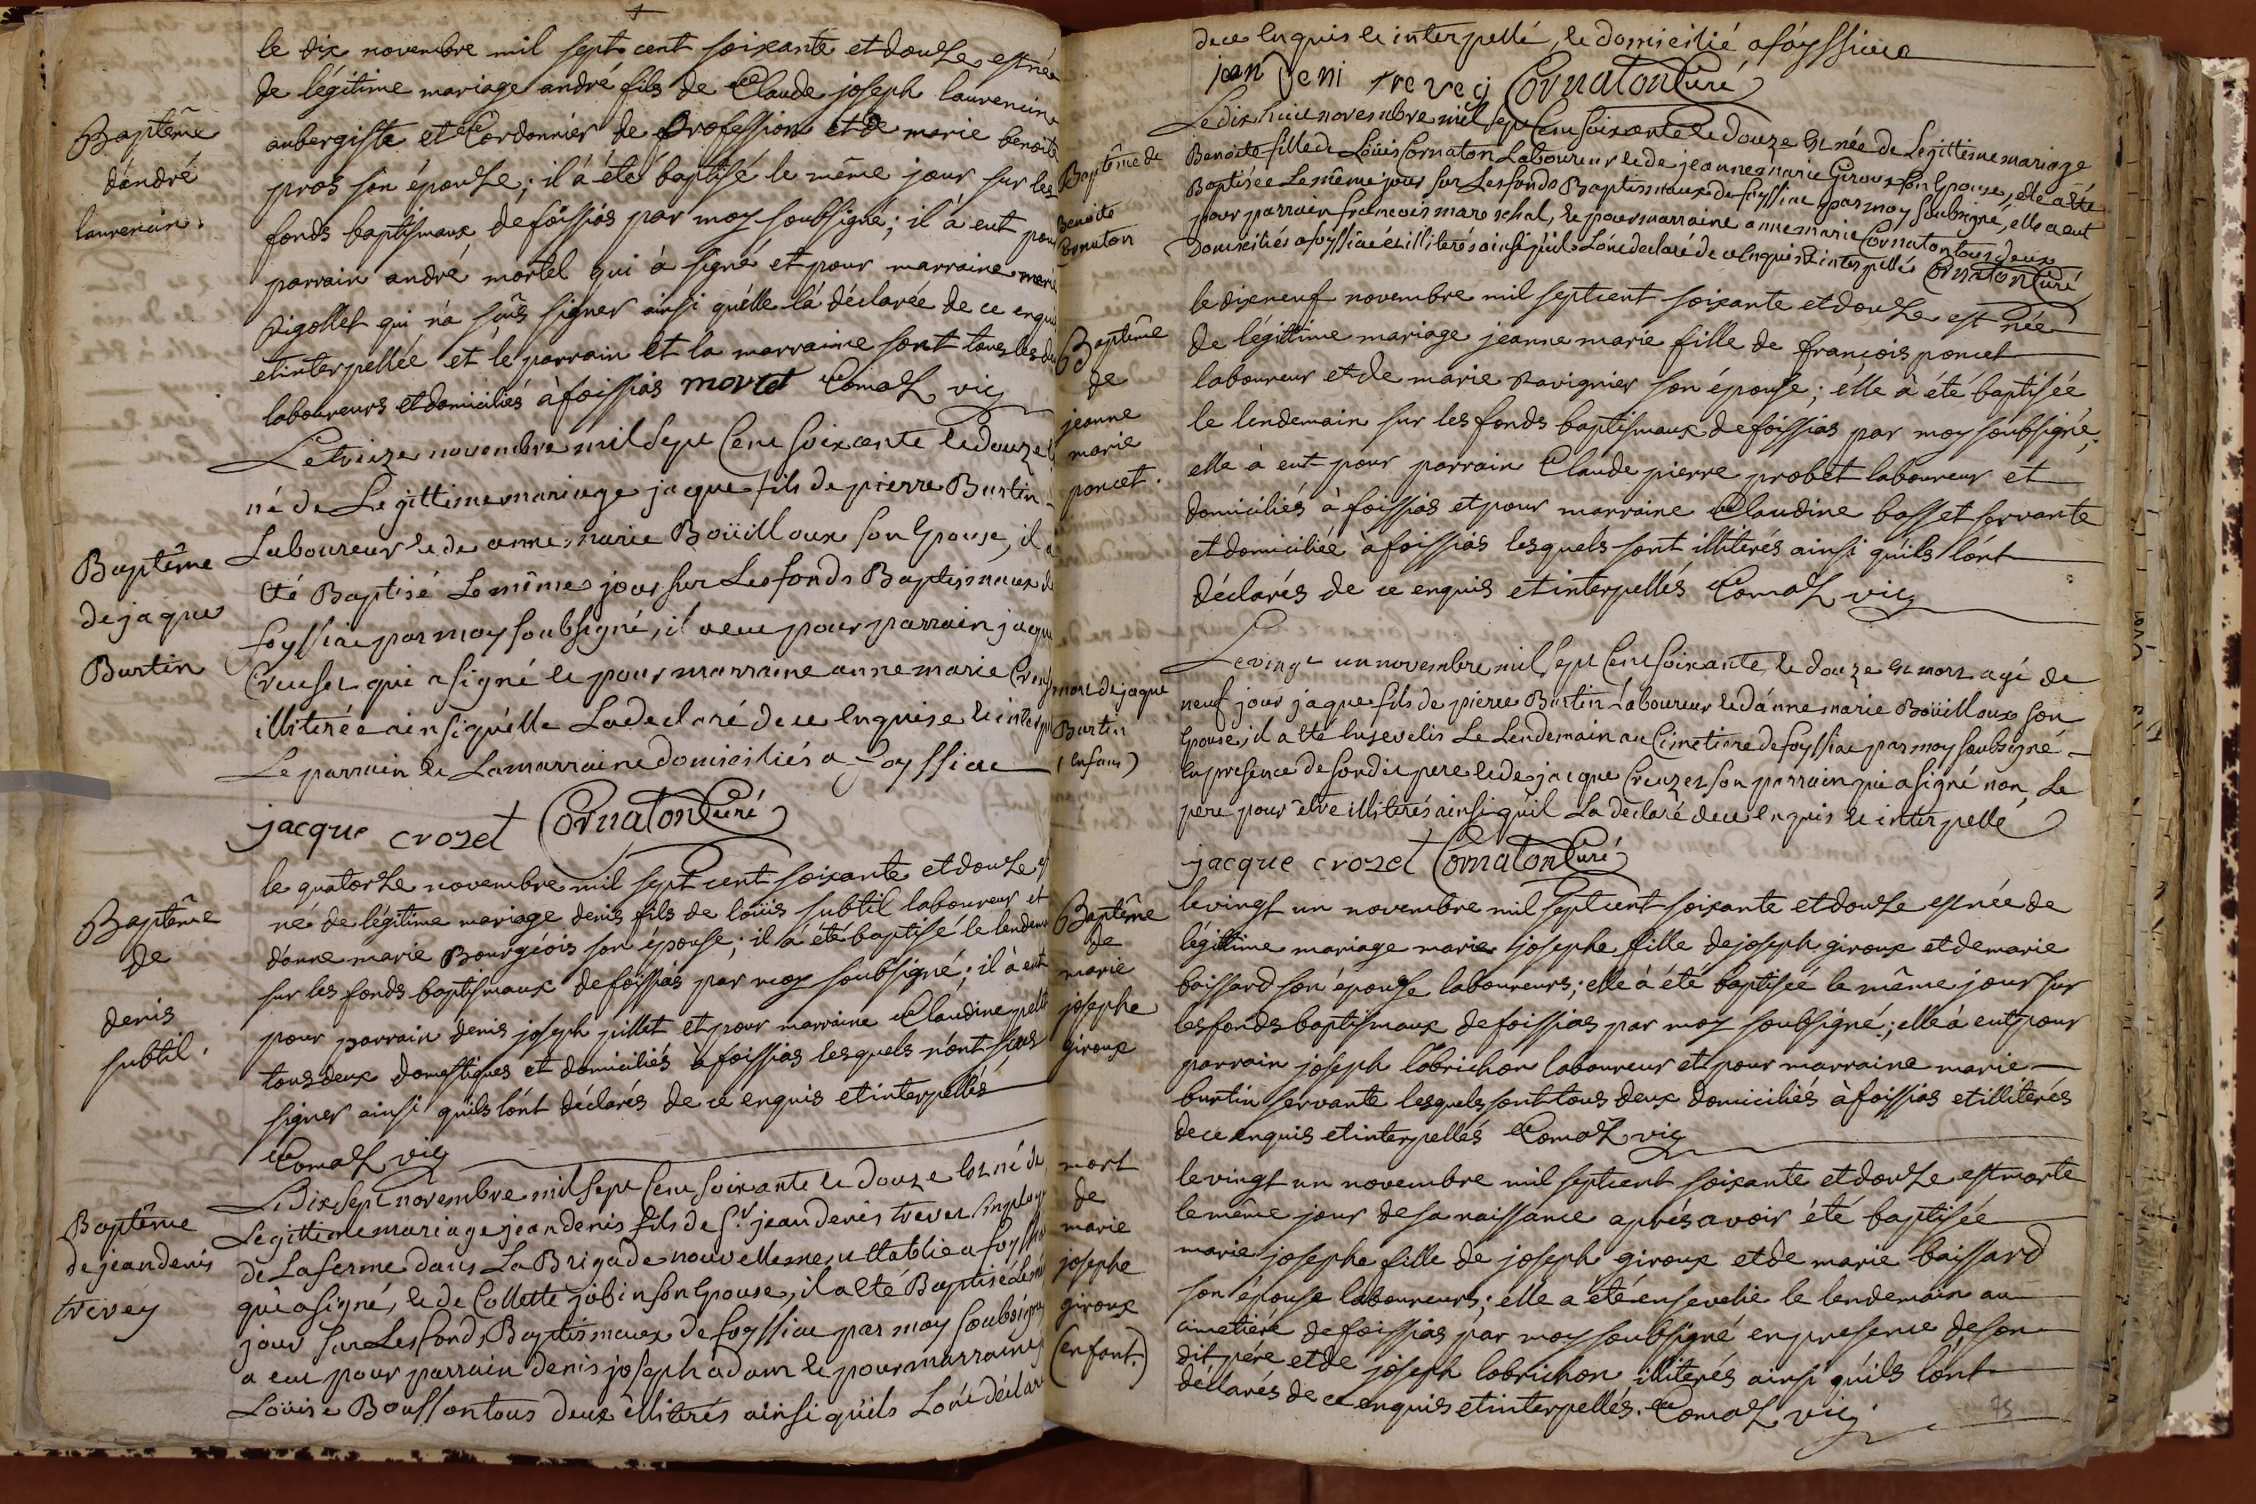 le dix novembre mil sept cent soixante et douze est né
de légitime mariage andré fils de Claude joseph laurencin
aubergiste et Cordonnier de profession et de marie benoite
pros son épouse; il à été baptisé le même jour sur les
fonds baptismaux de foissias par moy soubsigné; il à eut pour
parrain andré mortel qui à signé et pour marraine marie
Rigollet qui n'à sçus signer ainsi qu'elle l'a déclarée de ce enquise
et interpellée et le parrain et la marraine sont tous les deux
laboureurs et domiciliés à foissias mortel Comas vic
Baptême
d'andré
laurencin.
Le treize novembre mil sept Cent soixante et douze
né de Legittime mariage jacque fils de pierre Burtin
Laboureur et de anne marie Boüilloux son Epouse, il a
été Baptisé Le même jour sur Les fonds Baptismaux de
foyssiac par moy soubsigné, il a eut pour parrain jacque
Creuset qui a signé et pour marraine anne marie
illitérée ainsi qu'elle La declaré de ce Enquise et
Le parrain et La marraine domiciliés a foyssiac
jacque crozet Cornaton Curé
Baptême
de jaque
Burtin
le quatorze novembre mil sept cent soixante et douze
né de légitime mariage denis fils de loüis subtil laboureur et
d'anne marie Bourgeois son épouse; il à été baptisé le
sur les fonds baptismaux de foissias par moy soubsigné; il à eut
pour parrain denis joseph juillet et pour marraine Claudine
tous deux domestiques et domiciliés à foissias lesquels n'ont sçus
signer ainsi qu'ils l'ont déclarés de ce enquis et interpellés
Comas vic
Baptême
de
denis
subtil.
Le Dix sept novembre mil sept Cent soixante et douze Est né de
Legittime mariage jean denis fils de Sr jean denis trevet
de La ferme dans La Brigade nouvellement Etablie a
qui a signé, et de Collette jobin son Epouse, il a été Baptisé Le
jour sur Les fonds Baptismaux de foyssiac par moy soubsigné
a eut pour parrain denis joseph adam et pour marraine
Loüise Bousson tous deux illiterés ainsi qu'ils Lont déclaré
Baptême
de jean denis
trevey
de ce Enquis et interpellé, et domicilié a foyssiac
jean deni trevey Cornaton Curé
Le dix huit novembre mil sept Cent soixante et douze Est née de Legittime mariage
Benoite fille de Loüis Cornaton Laboureur et de jeanne marie Giroux son Epouse, elle a été
Baptisée Le même jour sur Les fonds Baptismaux de foyssiac par moy soubsigné, elle a eut
pour parrain francois mareschal, et pour marraine anne marie Cornaton tous deux
Domiciliés a foyssiac et illiterés ainsi qu'ils Lont declaré de ce Enquis et interpellés Cornaton Curé
Baptême de
Benoite
Cornaton
le dixneuf novembre mil septcent soixante et douze est née
de légittime mariage jeanne marie fille de françois poncet
laboureur et de marie Ravignier son épouse; elle à été baptisée
le lendemain sur les fonds baptismaux de foissias par moy soubsigné,
elle à eut pour parrain Claude pierre probet laboureur et
domiciliés à foissias et pour marraine Claudine basset servante
et domiciliée à foissias lesquels sont illiterés ainsi qu'ils l'ont
déclarés de ce enquis et interpellés Comas vic
Baptême
de
jeanne
marie
poncet.
Le vingt un novembre mil sept Cent soixante et douze Est mort agé de
neuf jour jaque fils de pierre Burtin Laboureur et d'anne marie Boüilloux son
Epouse, il a été Ensevelis Le Lendemain au Cimetiere de foyssiac par moy soubsigné
En presence de son dit pere et de jacque Creuzet son parrain qui a signé non Le
pere pour être illiterés ainsi qu'il La déclaré de ce Enquis et interpellé
jacque crozet Cornaton Curé
mort de jaque
Burtin
(Enfant)
le vingt un novembre mil sept cent soixante et douze est née de
légittime mariage marie josephe fille de joseph giroux et de marie
baissard son épouse laboureurs; elle à été baptisée le même jour sur
les fonds baptismaux de foissias par moy soubsigné; elle à eut pour
parrain joseph labrichon laboureur et pour marraine marie
burtin servante lesquels sont tous deux domiciliés à foissias et illitérés
de ce enquis et interpellés Comas vic
Baptême
de
marie
josephe
giroux
le vingt un novembre mil septcent soixante et douze est morte
le même jour de sa naissance aprés avoir été baptisée
marie josephe fille de joseph giroux et de marie baissard
son épouse laboureurs; elle a été ensevelie le lendemain au
cimetiére de foissias par moy soubsigné en presence de son
dit pére et de joseph labrichon illiterés ainsi qu'ils l'ont
déclarés de ce enquis et interpellés. Comas vic
mort
de
marie
josephe
giroux
(enfant.)